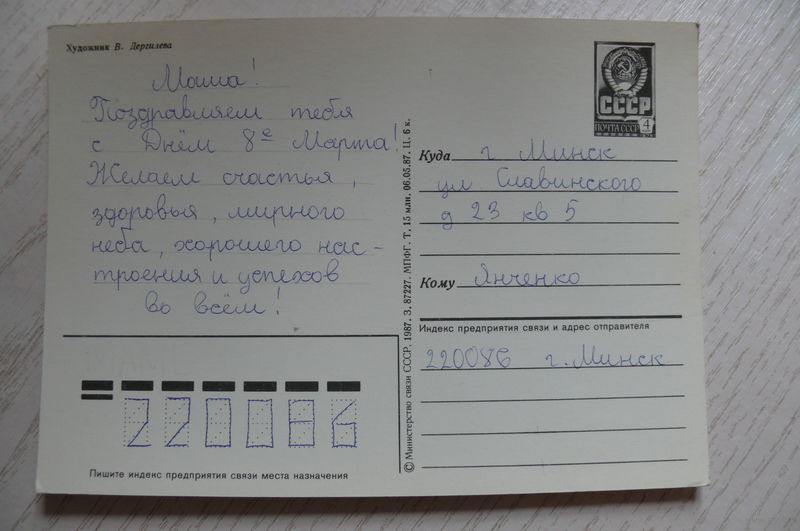 Художник В. Дергилева
Мама!
Поздравляем тебя
с Днём 8е Марта!
Желаем счастья,
здоровья, мирного
неба, хорошего нас-
троения и успехов
во всём!
220086
Пишите индекс предприятия связи места назначения
© Министерство связи СССР. 1987. З. 87227. МПФГ. Т. 15 млн. 06.05.87. Ц. 6 к.
СССР
ПОЧТА СССР 4
Куда г Минск
ул Славинского
д 23 кв 5
Кому Янченко
Индекс предприятия связи и адрес отправителя
220086 г. Минск